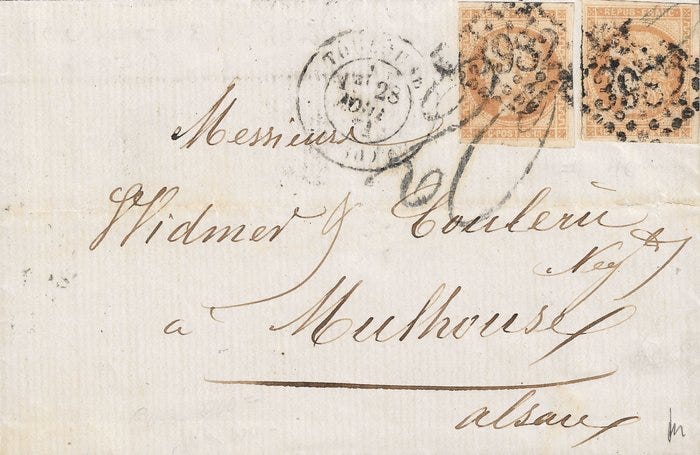 REPUB FRANC
REPUB FRANC
3982
3982
TOULOUSE
28
AOUT
71
POSTES
Messieurs
Widmer & Couleru
Negt
à Mulhouse
alsace